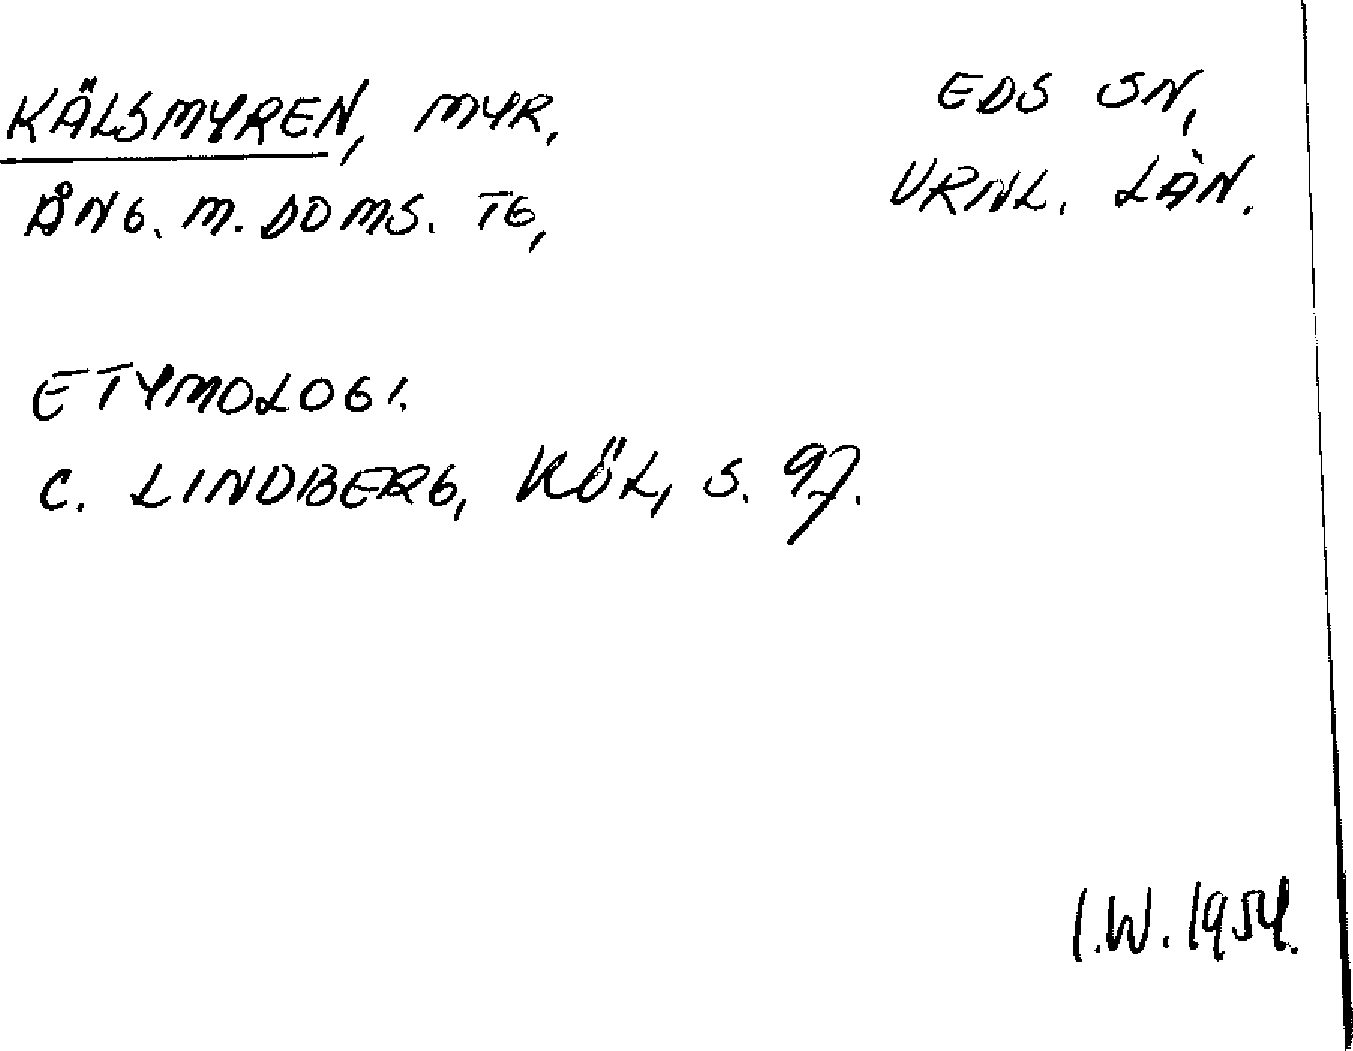 KÄLSMYREN, MYR,
EDS SN,
ÅNG. M. DOMS. TG,
VRNL. LÄN.
ETYMOLOGI.
C. LINDBERG, KÖL, S. 97.
I.W. 1954.